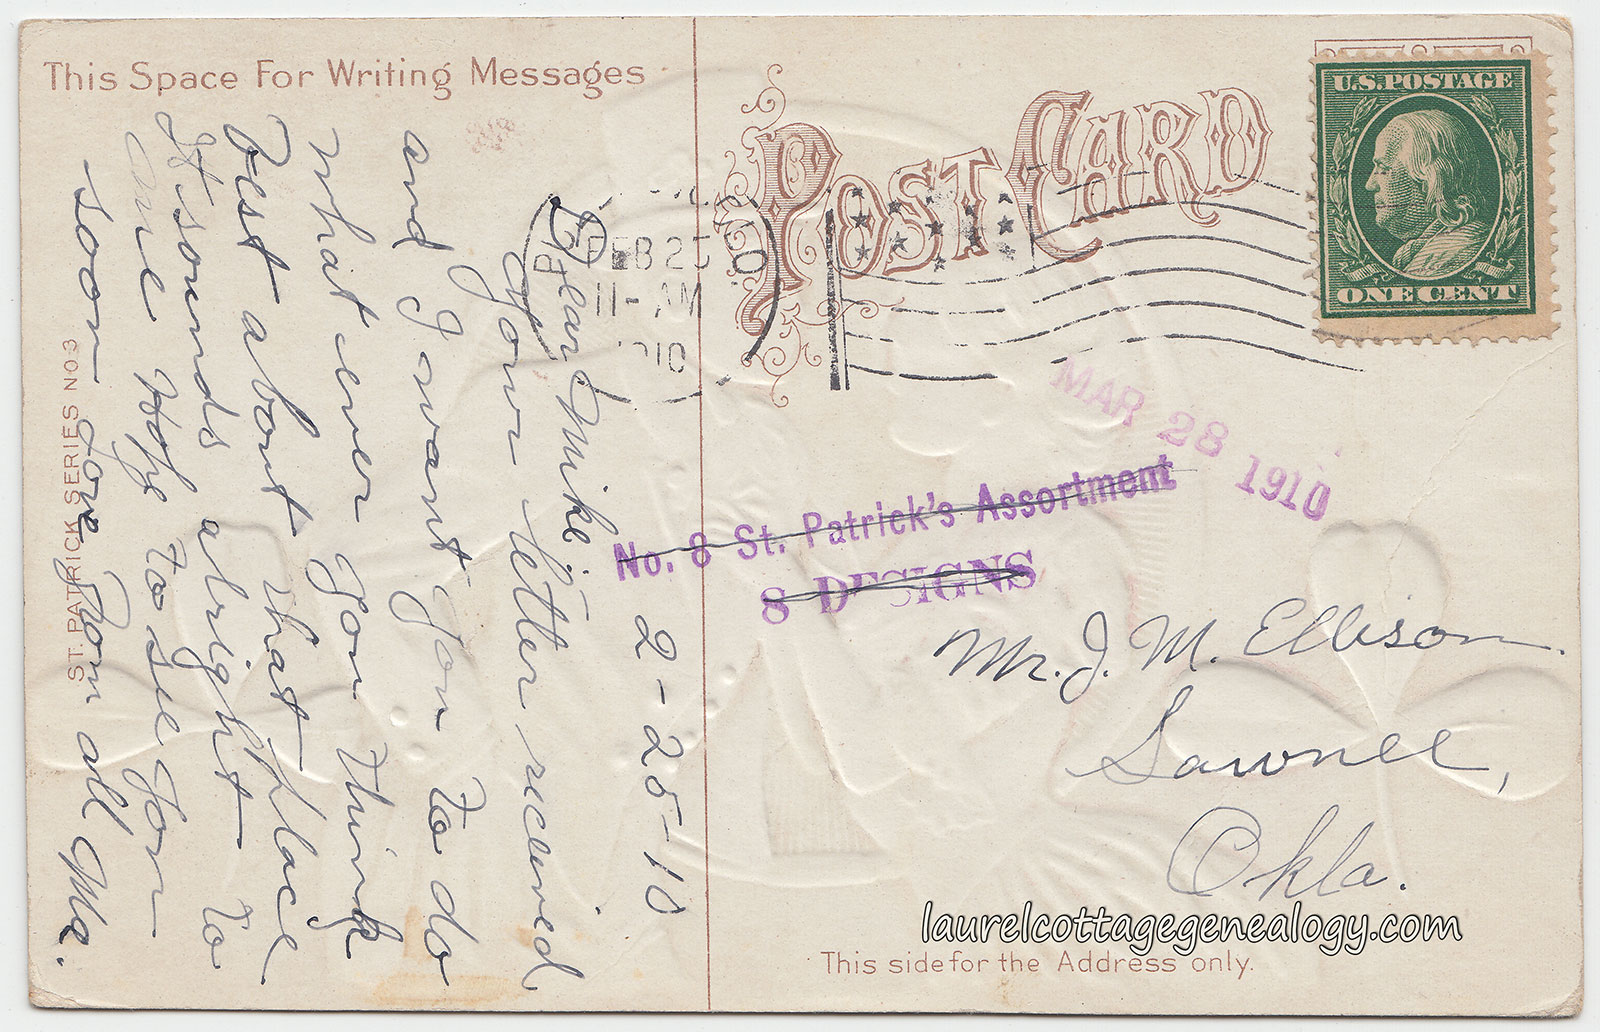 This Space For Writing Messages
POST CARD
U.S. POSTAGE
ONE CENT
FEB 25
11 - AM
1910
2-25-10
Dear Mike:-
Your letter received
and I want you to do
what ever you think
best about that place
It sounds alright to
me Hope to see you
soon Love from all Ma.
ST. PATRICK SERIES NO 3
MAR 28 1910
No. 8 St. Patrick's Assortment
8 DESIGNS
Mr. J. M. Ellison.
Okla.
laurelcottagegenealogy.com
This side for the Address only.